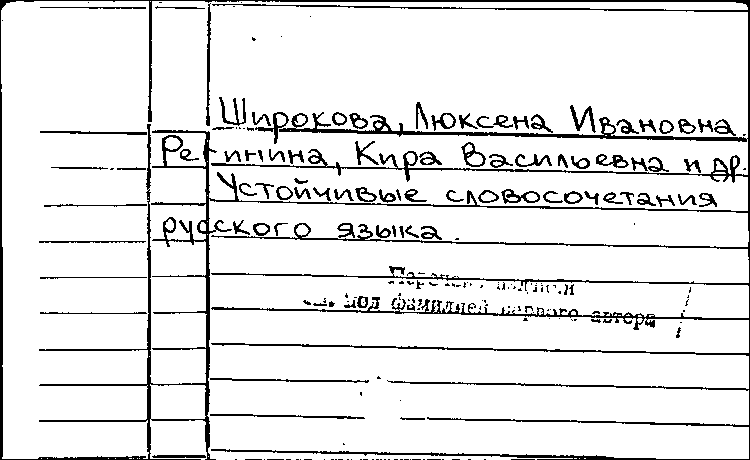 Широкова, Люксена Ивановна.
Регинина, Кира Васильевна и др.
Устойчивые словосочетания
русского языка.
под фамилией первого автора